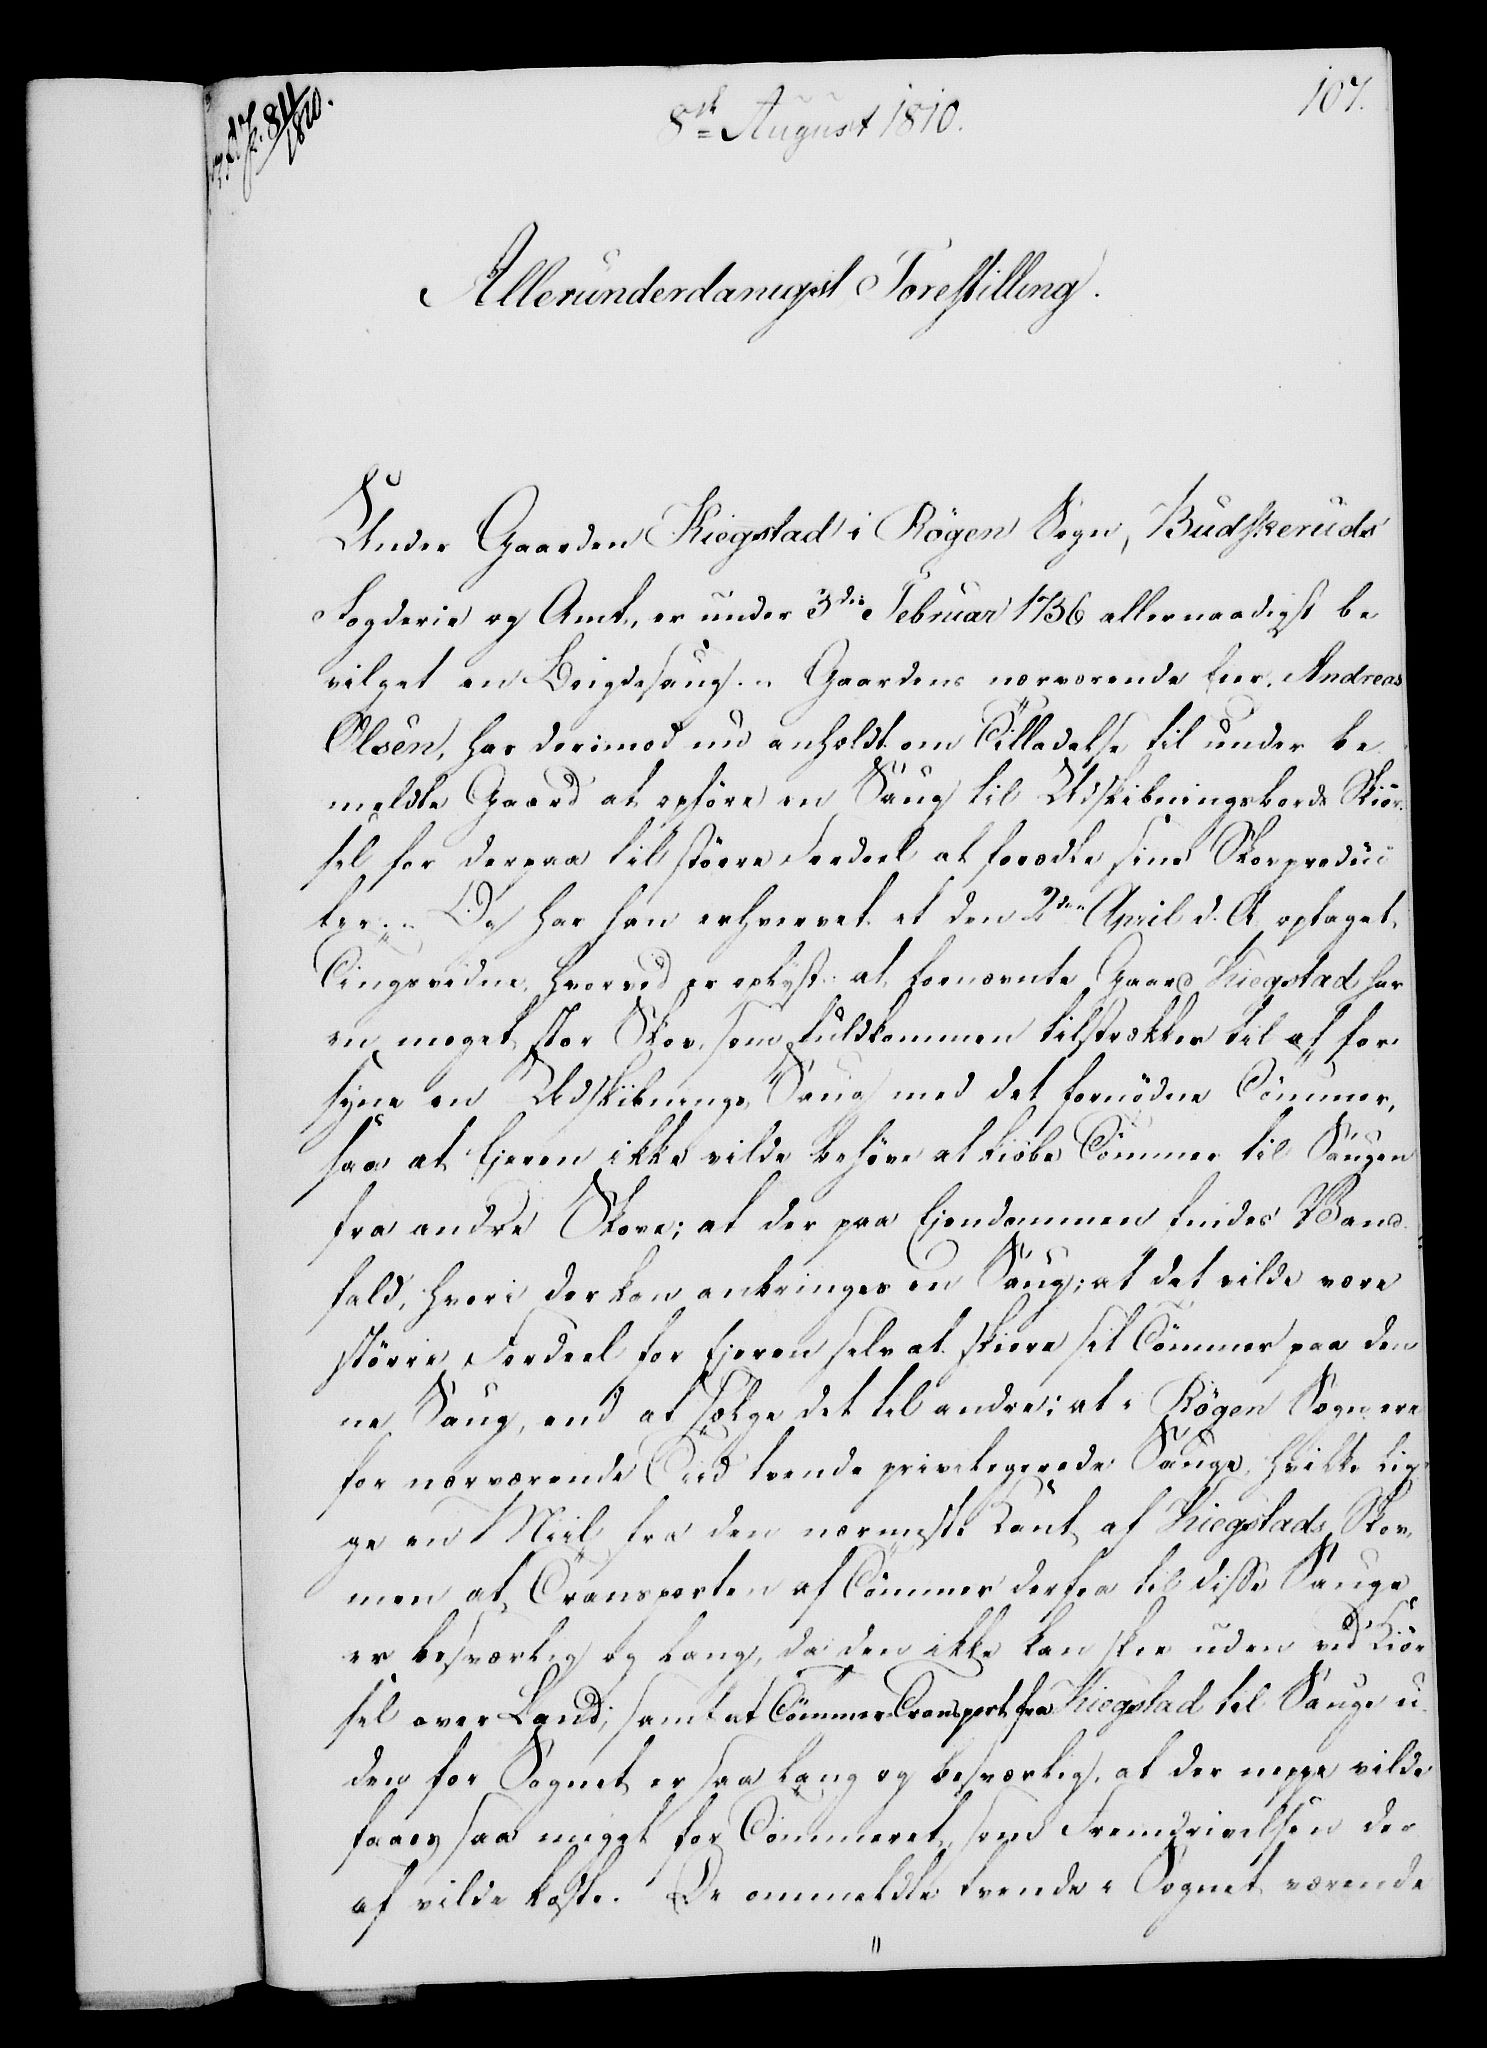 107.
8de August 1810.
84/1810.
Allerunderdanigst Forestilling.
Under Gaarden Kiegstad i Rögen Sogn, Budskeruds
Fogderie og Amt, er under 3die Februar 1736 allernaadigst be
vilget en Bøigdesaug. Gaardens nærværende Eier, Andreas
Olsen, har derimod nu anholdt om Tilladelse til under be
meldte Gaard at opföre en Saug til Udskibningsbords Skiör-
sel for derpaa til större Fordeel at forædle sine Skovproduc
ter. Og har han erhvervet et den 2den April d. A. optaget
Tingsvidne, hvorved er oplyst at fornævnte Gaard Kiegstad har
en meget stor Skov, som fuldkommen tilstrækker til at for-
syne en Udskibnings Saug med det fornödne Tömmer,
saa at Ejeren ikke vilde behöve at kiöbe Tömmer til Saugen
fra andre Skove; at der paa Ejendommen findes Vand-
fald, hvori der kan anbringes en Saug; at det vilde være
större Fordeel for Ejeren selv at skiere sit Tömmer paa den
ne Saug, end at sælge det til andre; at i Rögen Sogn ere
for nærværende Tiid tvende privilegerede Sauge, hvilke lig
ge en Miil fra den nærmeste Kant af Kiegstads Skov,
men at Transporten af Tömmer derfra til disse Sauge
er besværlig og lang, da den ikke kan skee uden ved Kiör
sel over Land; samt at Tömmer Transport fra Kiegstad til Sauge u
den for Sognet er saa lang og besværlig, at der neppe vilde
faaes saa meget for Tömmeret, som Fremdrivelsen der
af vilde koste. De ommeldte tvende i Sognet værende